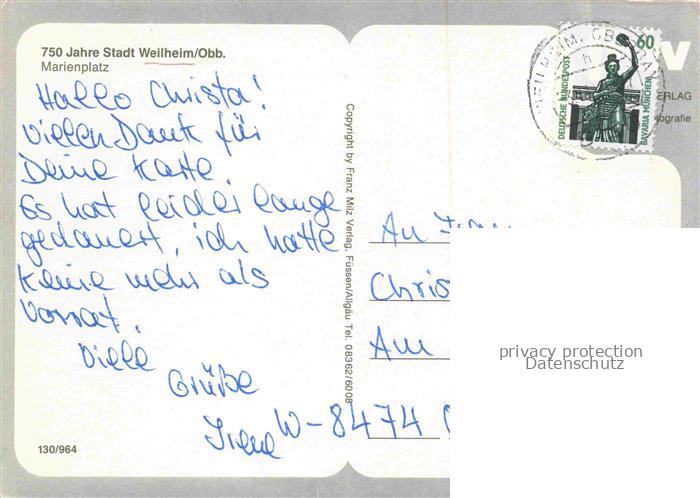 750 Jahre Stadt Weilheim/Obb.
Marienplatz
Hallo Christa!
Vielen Dank für
Deine Karte.
Es hat leider lange
gedauert, ich hatte
keine mehr als
Vorrat.
Viele
Grüße
Irene
130/964
Copyright by Franz Milz Verlag, Füssen/Allgäu Tel. 08362/6008
60
DEUTSCHE BUNDESPOST
BAVARIA MÜNCHEN
V
ERLAG
ografie
An Frau
Chris
Am
W-8474
privacy protection
Datenschutz